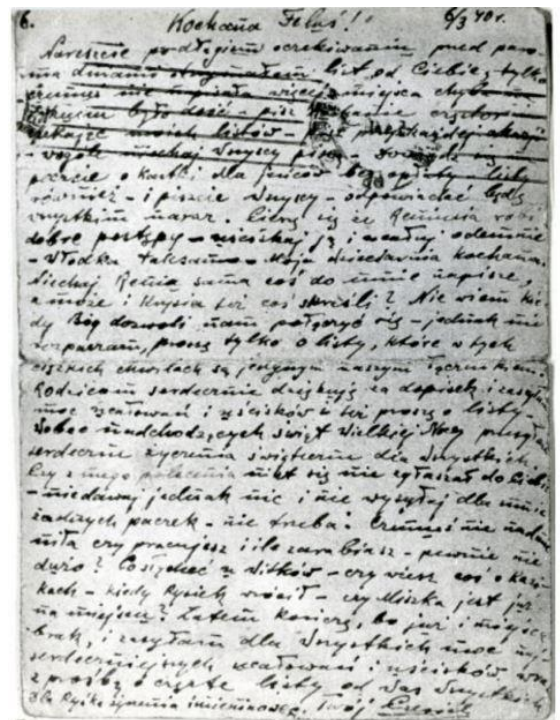 6. Kochana Feluś! 6/3 40 r.
Nareszcie po długiem oczekiwaniu, przed paro-
ma dniami otrzymałem list od Ciebie, tylko
czemuś nie napisała więcej
było dość – pisz
moich listów –
– wogóle niechaj wszyscy
o kartki dla jeńców bez opłaty
również – i piszcie wszyscy – odpowiadać będę
wszystkim naraz. Cieszę się że Renusia robi
dobre postępy – uściskaj ją i ucałuj odemnie
– Włodka takżesamo – Moja dzieciarnia kochana.
Niechaj Renia sama coś do mnie napisze,
a może i Krysia też coś skreśli? Nie wiem kie-
dy Bóg dozwoli nam połączyć się – jednak nie
rozpaczam, proszę tylko o listy, które w tych
ciężkich chwilach są jedynym naszym łącznikiem.
Rodzicom serdecznie dziękuję za dopisek i zasyłam
moc ucałowań i uścisków i też proszę o listy –
Wobec nadchodzących świąt Wielkiej Nocy
serdeczne życzenia świąteczne dla wszystkich.
Czy z mego polecenia nikt się nie zgłaszał do Ciebie
– niedawaj jednak nic i nie wysyłaj dla mnie
żadnych paczek – nie trzeba. Czemuś nie nadmie-
niła czy pracujesz i ile zarabiasz – pewnie nie
dużo? Co słychać u Witków – czy wiesz coś o
kach – kiedy Rysiek wrócił – czy Miszka jest już
na miejscu? Zatem kończę, bo już i miejsca
brak, i zasyłam dla wszystkich moc naj-
serdeczniejszych ucałowań i uścisków, wraz
z prośbą o częste listy od Was wszystkich
dla Ryśka życzenia imieninowe. Twój